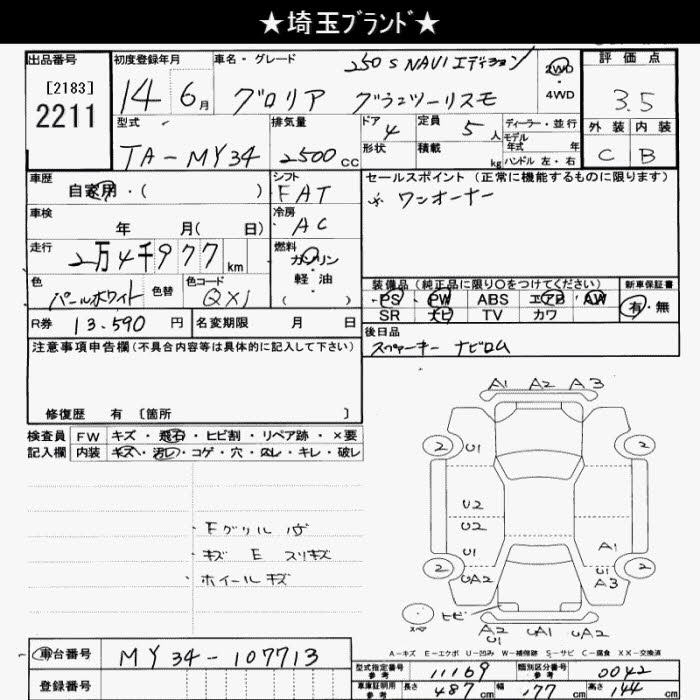 ★埼玉ブランド★
出品番号
[2183]
2211
初度登録年月
14 6月
車名・グレード
250 S NAVI エディション
グロリア グランツーリスモ
2WD
4WD
評価点
3.5
外装 内装
C B
型式
TA-MY34
排気量
2500cc
ドア
4
形状
定員
5人
積載
kg
ディーラー・並行
モデル年式 年
ハンドル 左・右
車歴
自家用・( )
シフト
FAT
セールスポイント(正常に機能するものに限ります)
※ ワンオーナー
車検
年 月( 日)
冷房
AC
走行
2万4千977km
燃料
ガソリン
軽油
( )
色
パールホワイト
色替
色コード
QX1
装備品(純正品に限り○をつけてください)
PS PW ABS エアB AW
SR ナビ TV カワ
新車保証書
有・無
R券 13.590円
名変期限 月 日
後日品
スペアーキー ナビロム
注意事項申告欄(不具合内容等は具体的に記入して下さい)
修復歴 有〔箇所 〕
検査員 FW キズ・飛石・ヒビ割・リペア跡・×要
記入欄 内装 キズ・汚レ・コゲ・穴・凹レ・キレ・破レ
・Fグリル
・キズ E スリキズ
・ホイールキズ
A1 A2 A3
2 U1 2
U2
U2
U1 A1
2 UA2 U1 A3 2
スペア ヒビ
A2 U2 UA1 UA2
A-キズ E-エクボ U-凹み W-補修跡 S-サビ C-腐食 XX-交換済
車台番号 MY34-107713
登録番号
型式指定番号 参考 11169
類別区分番号 参考 0042
車庫証明用 参考 長さ 487cm 幅 177cm 高さ 144cm